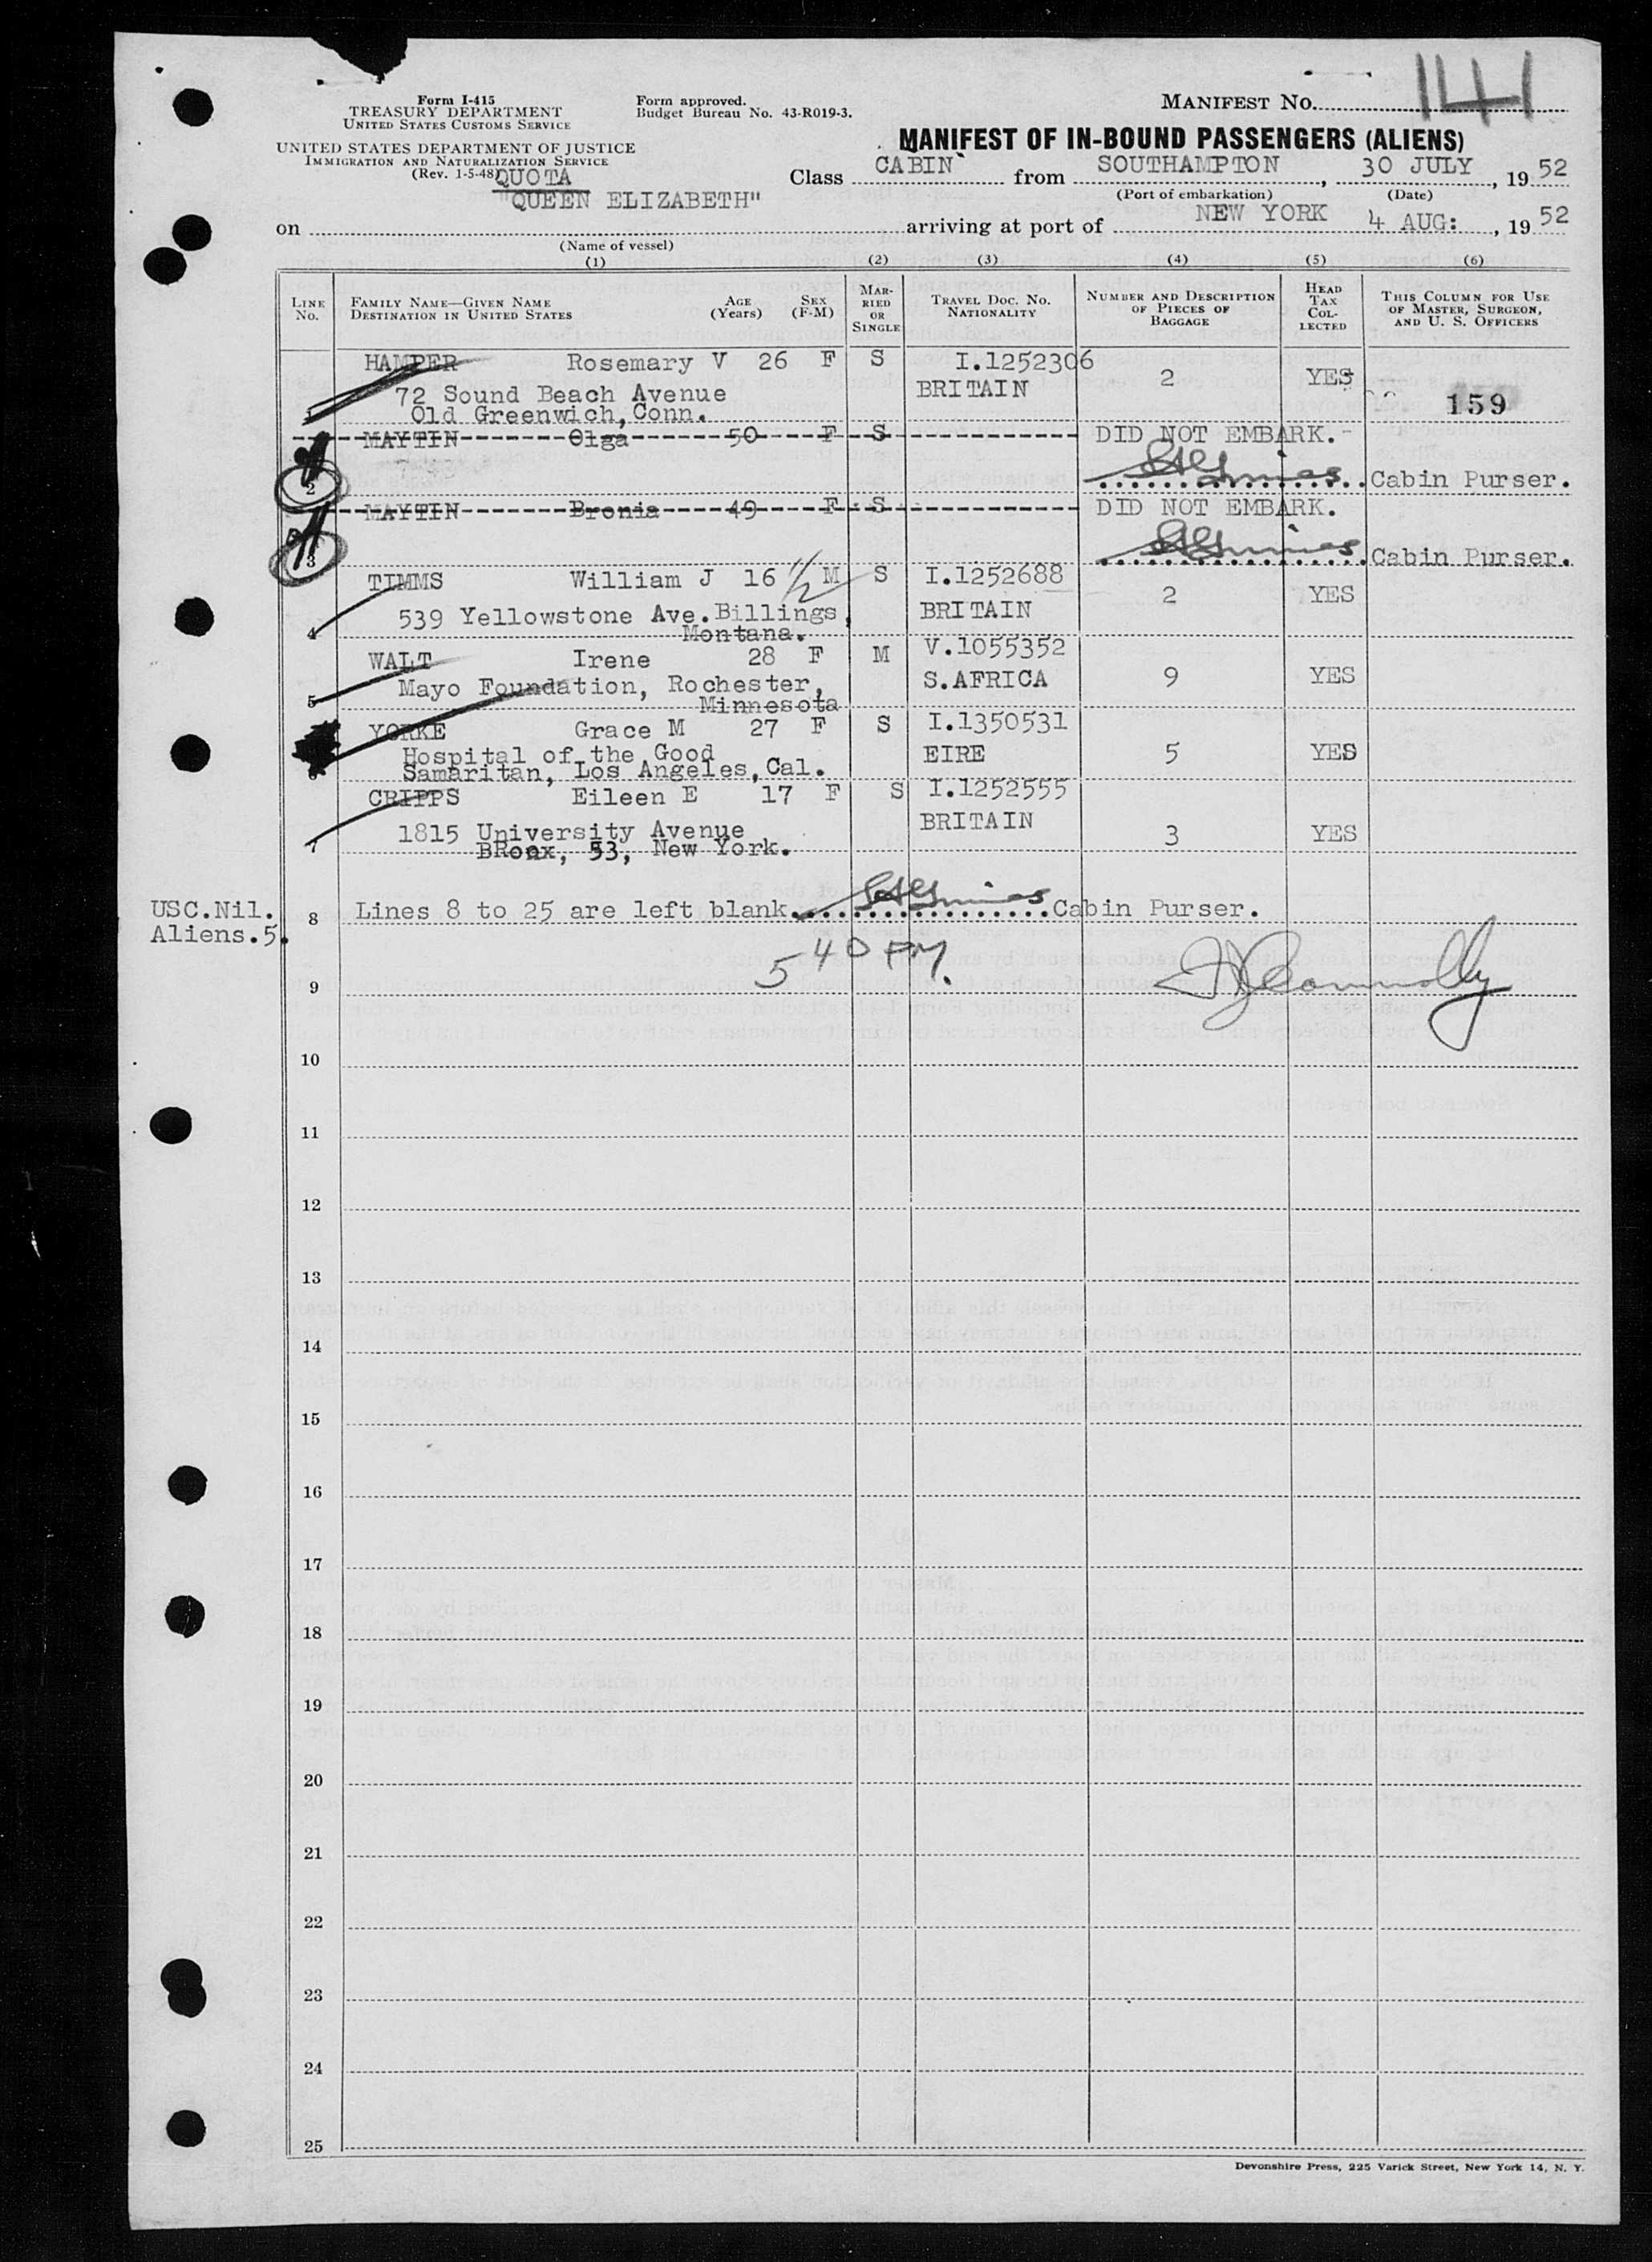 141
Form I-415
TREASURY DEPARTMENT
UNITED STATES CUSTOMS SERVICE
UNITED STATES DEPARTMENT OF JUSTICE
IMMIGRATION AND NATURALIZATION SERVICE
(Rev. 1-5-48)
Form approved.
Budget Bureau No. 43-R019-3.
MANIFEST NO.
MANIFEST OF IN-BOUND PASSENGERS (ALIENS)
QUOTA
Class CABIN from SOUTHAMPTON, 30 JULY, 19 52
(Port of embarkation) (Date)
on "QUEEN ELIZABETH" arriving at port of NEW YORK 4 AUG:, 19 52
(Name of vessel)
(1) (2) (3) (4) (5) (6)
LINE NO.
FAMILY NAME—GIVEN NAME
DESTINATION IN UNITED STATES
AGE (Years)
SEX (F-M)
MARRIED OR SINGLE
TRAVEL DOC. NO.
NATIONALITY
NUMBER AND DESCRIPTION OF PIECES OF BAGGAGE
HEAD TAX COLLECTED
THIS COLUMN FOR USE OF MASTER, SURGEON, AND U. S. OFFICERS
HAMPER Rosemary V 26 F S I.1252306 2 YES
72 Sound Beach Avenue BRITAIN 159
Old Greenwich, Conn.
MAYTIN Olga 50 F S DID NOT EMBARK.
2 Cabin Purser.
MAYTIN Bronia 49 F S DID NOT EMBARK.
3 Cabin Purser.
TIMMS William J 16 1/2 M S I.1252688 2 YES
539 Yellowstone Ave. Billings, BRITAIN
4 Montana.
WALT Irene 28 F M V.1055352
Mayo Foundation, Rochester, S.AFRICA 9 YES
5 Minnesota
YORKE Grace M 27 F S I.1350531
Hospital of the Good EIRE 5 YES
6 Samaritan, Los Angeles, Cal.
CRIPPS Eileen E 17 F S I.1252555
1815 University Avenue BRITAIN 3 YES
7 BRonx, 53, New York.
USC.Nil.
Aliens.5.
8 Lines 8 to 25 are left blank. Cabin Purser.
5 40 PM.
9
10
11
12
13
14
15
16
17
18
19
20
21
22
23
24
25
Devonshire Press, 225 Varick Street, New York 14, N. Y.